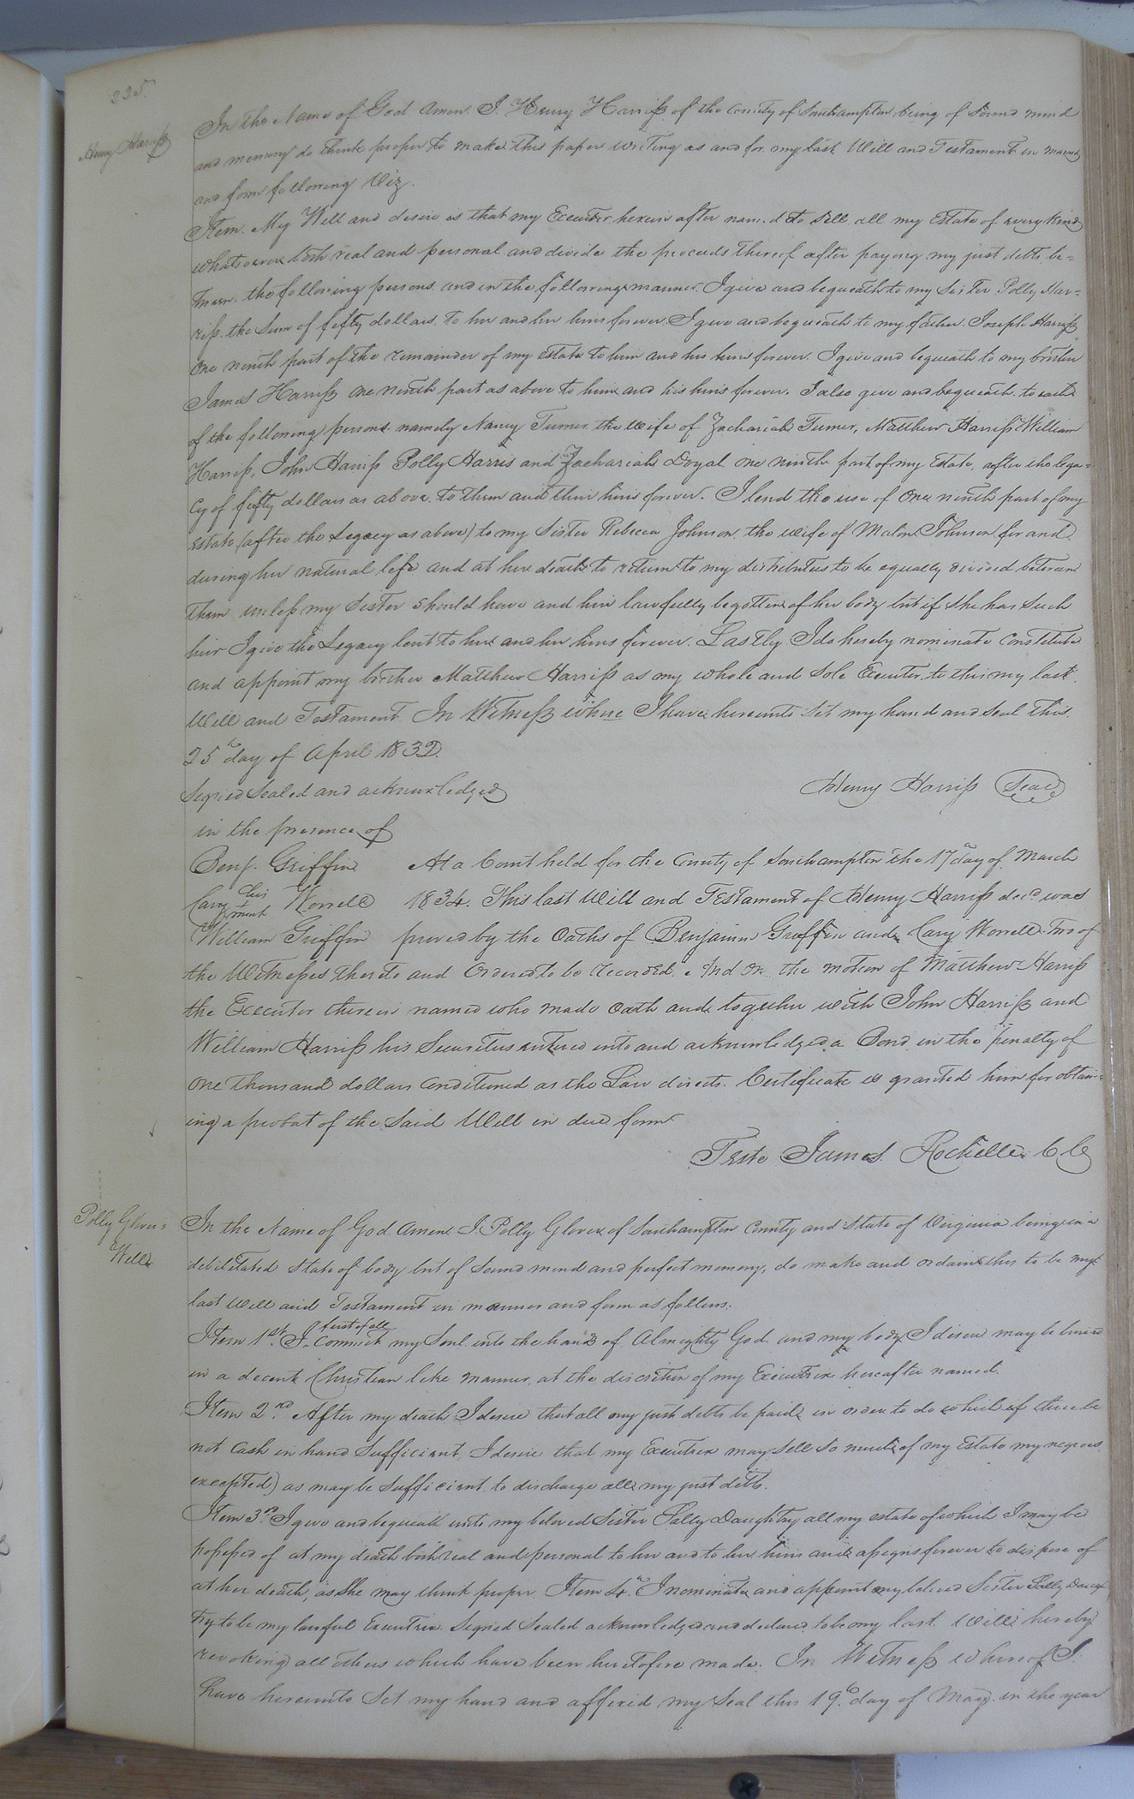 225.
Henry Harriss
In the Name of God Amen. I. Henry Harriss of the County of Southampton being of Sound mind
and memory do think proper to make this paper writing as and for my last Will and Testament in manner
and form following Viz.
Item. My Will and desire is that my Executor herein after named to Sell all my Estate of every kind
whatsoever both real and personal and divide the proceeds thereof after paying my just debts be=
tween the following persons and in the following manner. I give and bequeath to my Sister Polly Har=
riss the Sum of fifty dollars to her and her heirs forever. I give and bequeath to my father Joseph Harriss
One ninth part of the remainder of my estate to him and his heirs forever. I give and bequeath to my brother
James Harriss one ninth part as above to him and his heirs forever. I also give and bequeath to each
of the following persons namely Nancy Turner the wife of Zachariah Turner, Matthew Harriss William
Harriss, John Harriss Polly Harris and Zachariah Doyal one ninth part of my Estate after the lega=
cy of fifty dollars as above to them and their heirs forever. I lend the use of One ninth part of my
estate (after the Legacy as above) to my Sister Rebecca Johnson the wife of Johnson for and
during her natural life and at her death to return to my distributees to be equally divided between
them unless my Sister should have and heir lawfully begotten of her body but if she has Such
heir I give the Legacy lent to her and her heirs forever. Lastly I do hereby nominate constitute
and appoint my brother Matthew Harriss as my whole and Sole Executor to this my last
Will and Testament. In Witness where I have hereunto Set my hand and Seal this
25th day of April 1832.
Signed Sealed and acknowledged
Henry Harriss (Seal)
in the presence of
Benj. Griffin
Cary his + mark Worrell
William Griffin
At a Court held for the County of Southampton the 17th day of March
1834. This last Will and Testament of Henry Harriss decd was
proved by the Oaths of Benjamin Griffin and Cary Worrell Two of
the Witnesses thereto and Ordered to be Recorded. And On the motion of Matthew Harriss
the Executor therein named who made Oath and together with John Harriss and
William Harriss his Securities entered into and acknowledged a Bond in the penalty of
One thousand dollars Conditioned as the Law directs. Certificate is granted him for obtain=
ing a probat of the Said Will in due form
Teste James Rochelle CC
Polly Glover=
Will
In the Name of God Amen I Polly Glover of Southampton County and State of Virginia being in a
debilitated State of body but of Sound mind and perfect memory, do make and ordain this to be my
last Will and Testament in manner and form as follows.
Item 1st. I first of all Commit my Soul into the hands of Almighty God and my body I desire may be buried
in a decent Christian like manner, at the discretion of my Executrix hereafter named.
Item 2nd. After my death I desire that all my just debts be paid, in order to do which if there be
not Cash in hand Sufficient, I desire that my Executrix may Sell So much of my Estate my negroes
excepted) as may be Sufficient to discharge all my just debts.
Item 3rd I give and bequeath unto my beloved Sister Sally Daughtry all my estate of which I may be
possessed of at my death both real and personal to her and to her heirs and assigns forever to dispose of
at her death, as She may think proper. Item 4th I nominate and appoint my beloved Sister Sally Daugh
try to be my lawful Executrix. Signed Sealed acknowledged and declared to be my last Will hereby
revoking all others which have been heretofore made. In Witness whereof I
have hereunto Set my hand and affixed my Seal this 19th day of May in the year